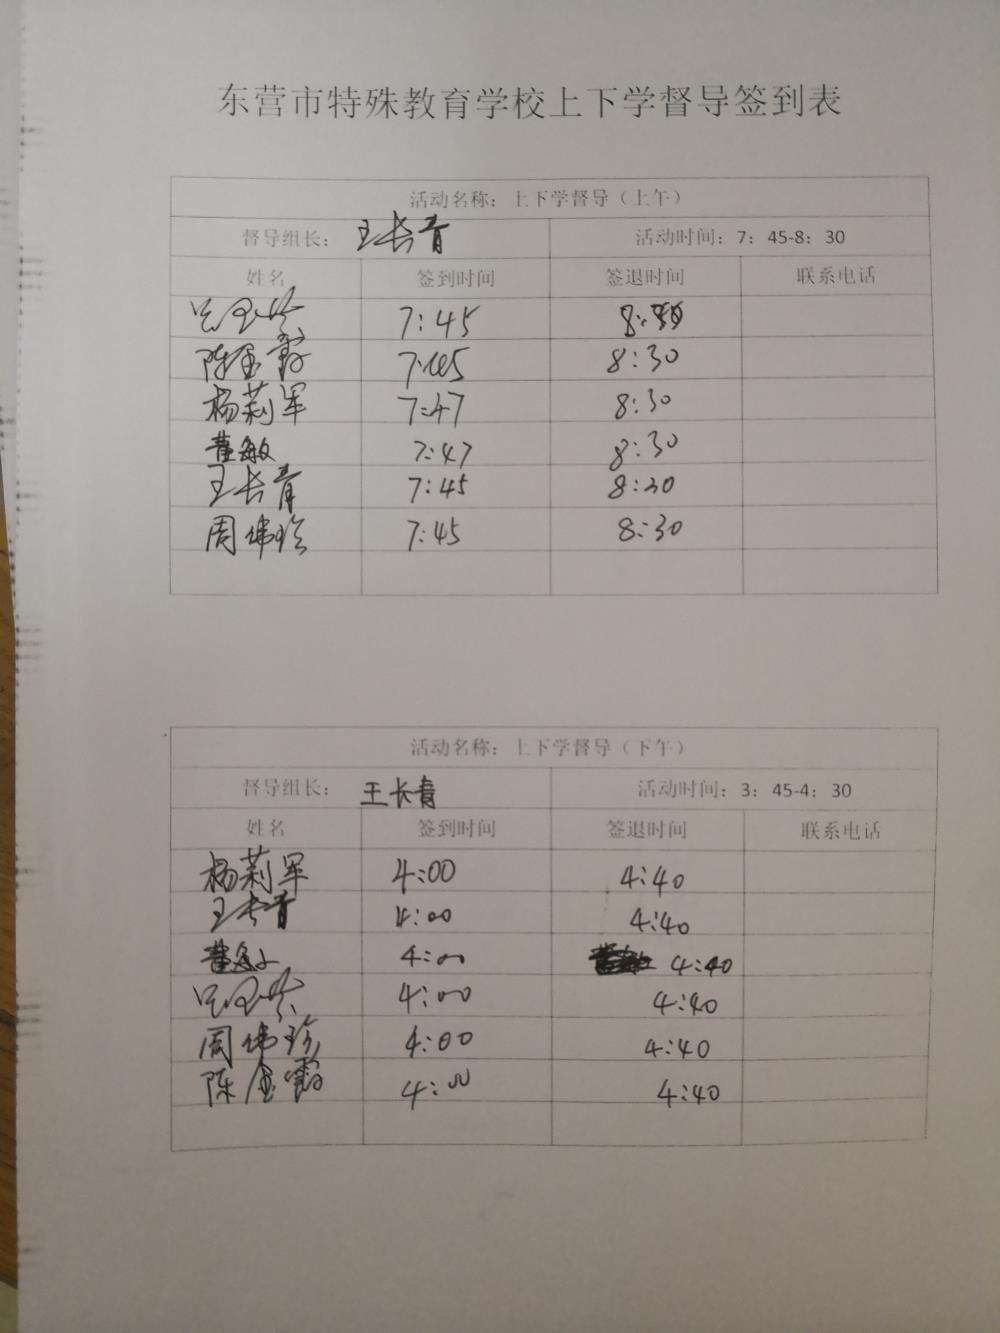 东营市特殊教育学校上下学督导签到表
活动名称：上下学督导（上午）
督导组长： 王长青 活动时间：7：45-8：30
姓名 签到时间 签退时间 联系电话
7:45
陈金霞 7:45 8:30
杨莉军 7:47 8:30
董敏 7:47 8:30
王长青 7:45 8:30
周伟珍 7:45 8:30
活动名称：上下学督导（下午）
督导组长： 王长青 活动时间：3：45-4：30
姓名 签到时间 签退时间 联系电话
杨莉军 4:00 4:40
王长青 4:00 4:40
董敏 4:00 4:40
4:00 4:40
周伟珍 4:00 4:40
陈金霞 4:00 4:40